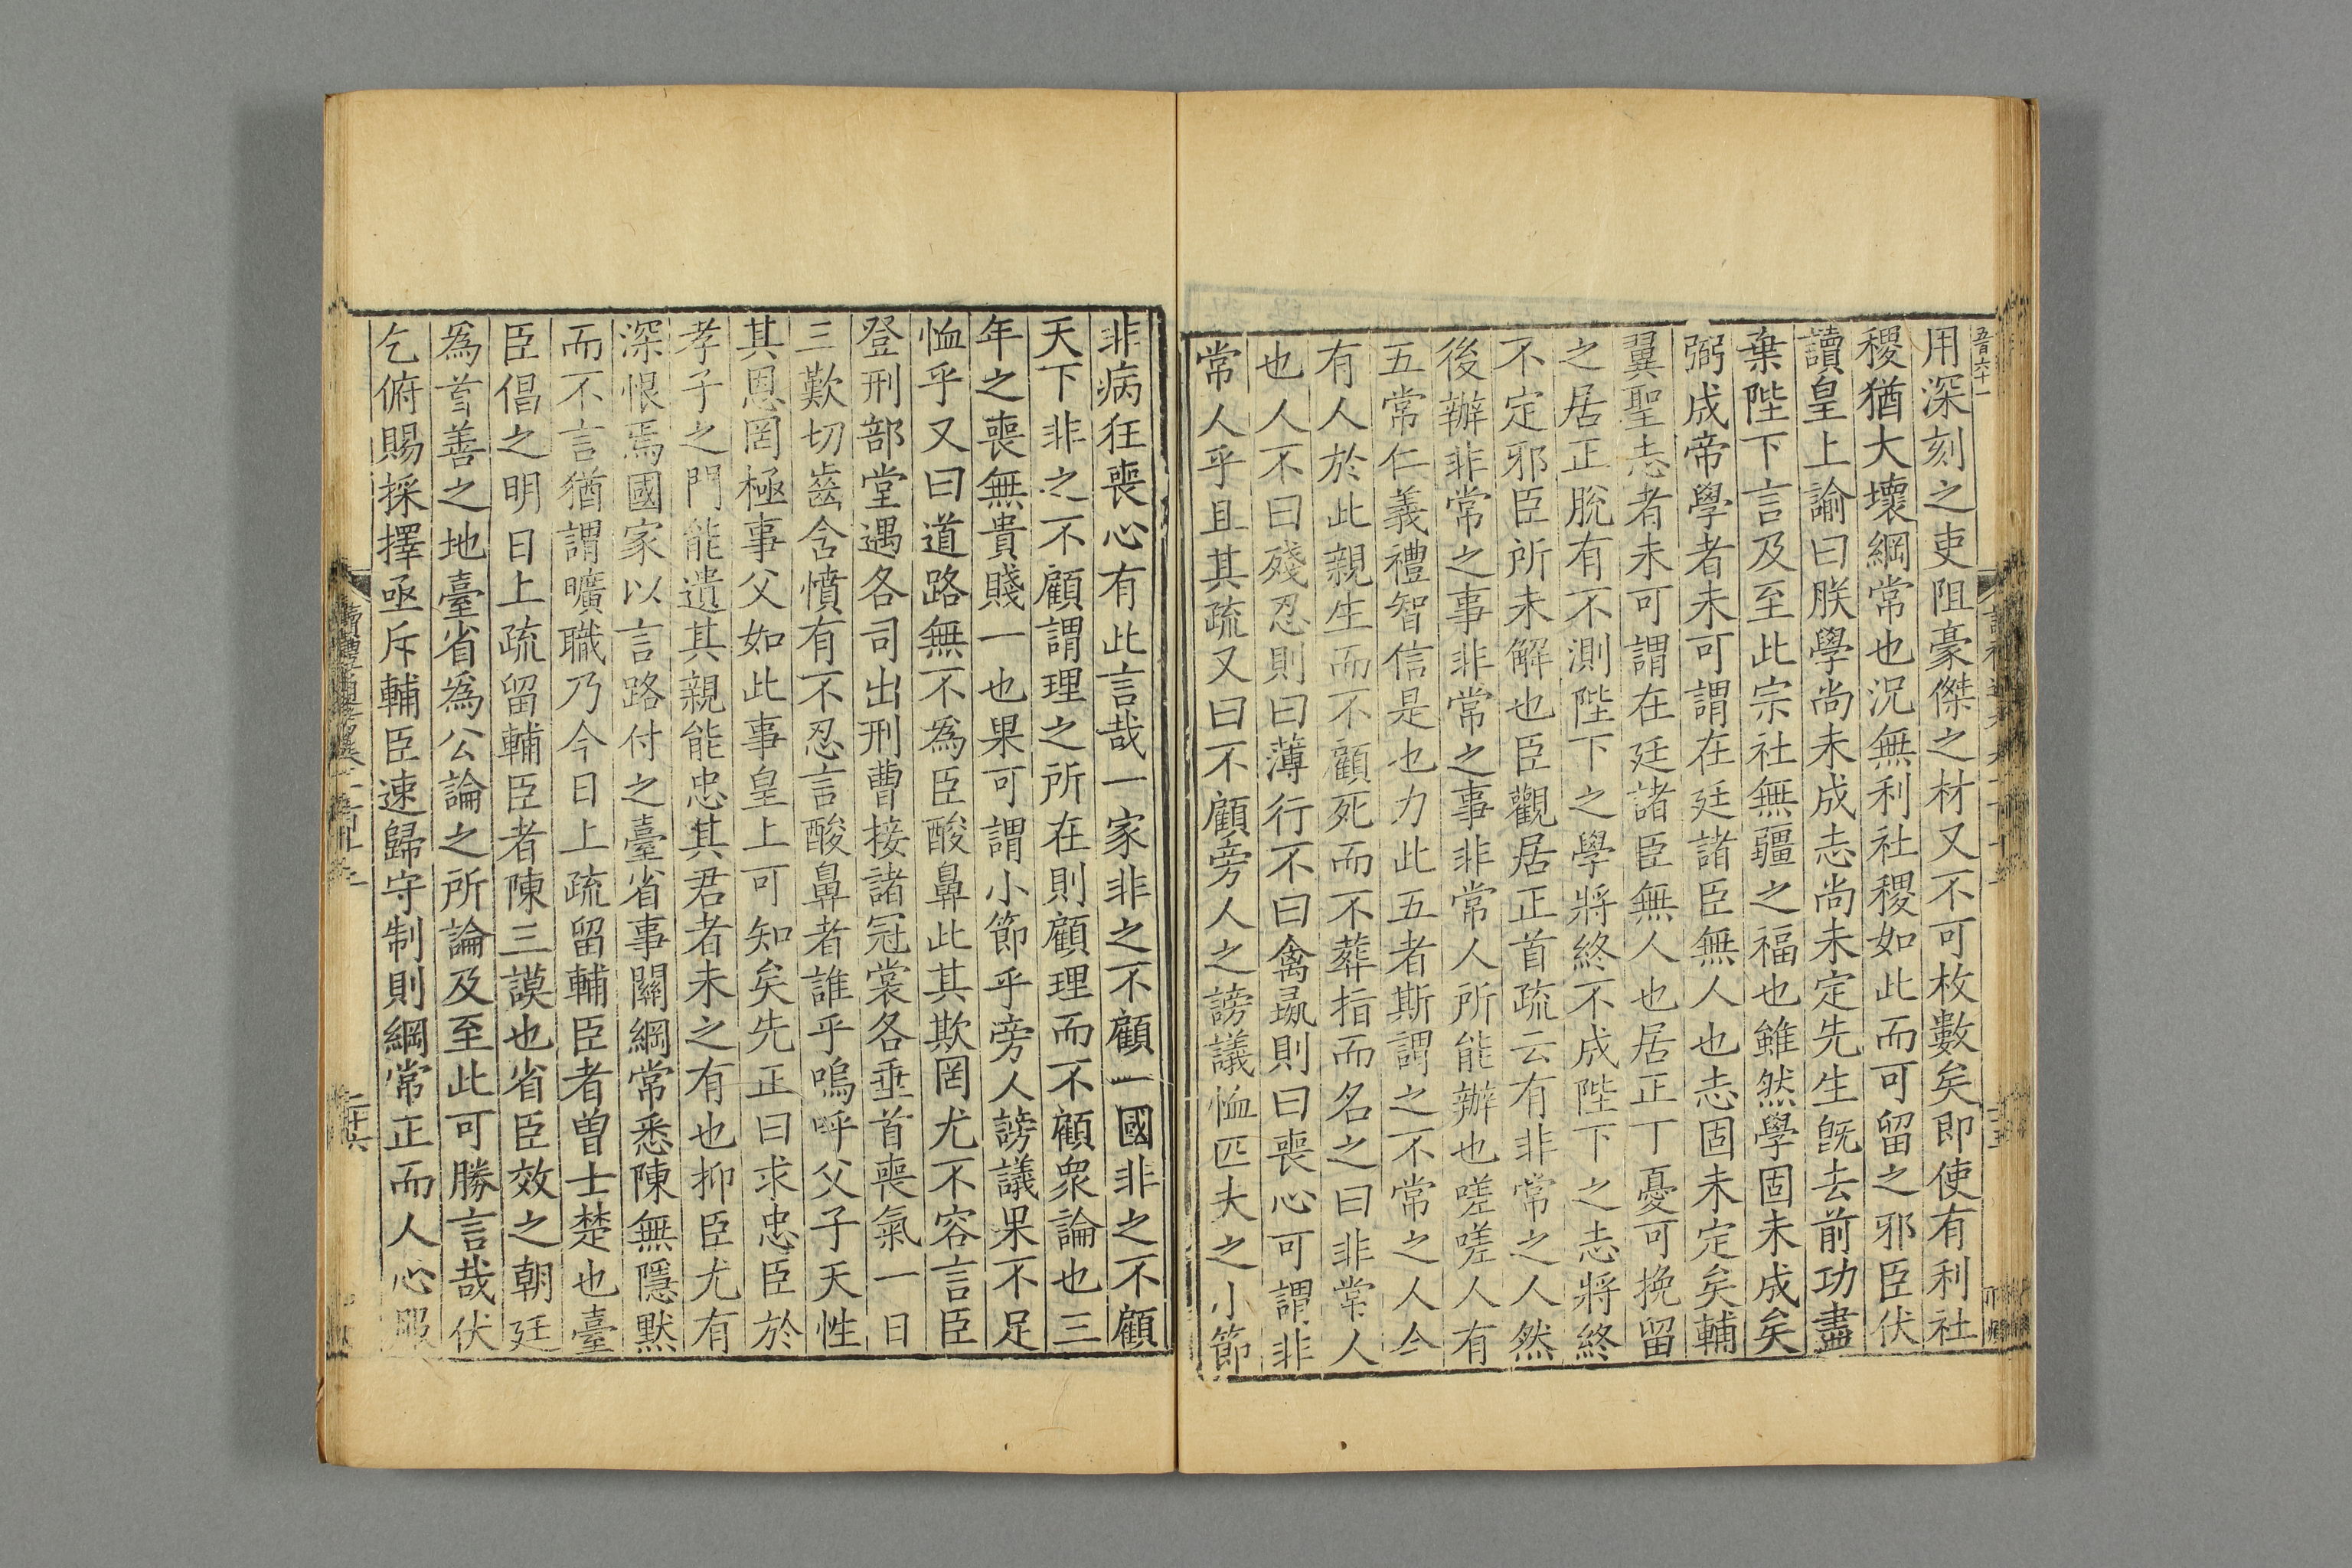 五百六十一
用深刻之吏阻豪傑之材又不可枚數矣即使有利社
稷猶大壞綱常也況無利社稷如此而可留之邪臣伏
讀皇上諭曰朕學尚未成志尚未定先生旣去前功盡
棄陛下言及至此宗社無疆之福也雖然學固未成矣
弼成帝學者未可謂在廷諸臣無人也志固未定矣輔
翼聖志者未可謂在廷諸臣無人也居正丁憂可挽留
之居正脫有不測陛下之學將終不成陛下之志將終
不定邪臣所未解也臣觀居正首疏云有非常之人然
後辦非常之事非常之事非常人所能辦也嗟嗟人有
五常仁義禮智信是也力此五者斯謂之不常之人今
有人於此親生而不顧死而不葬指而名之曰非常人
也人不曰殘忍則曰薄行不曰禽彘則曰喪心可謂非
常人乎且其疏又曰不顧旁人之謗議恤匹夫之小節
非病狂喪心有此言哉一家非之不顧一國非之不顧
天下非之不顧謂理之所在則顧理而不顧衆論也三
年之喪無貴賤一也果可謂小節乎旁人謗議果不足
恤乎又曰道路無不爲臣酸鼻此其欺罔尤不容言臣
登刑部堂遇各司出刑曹接諸冠裳各垂首喪氣一日
三歎切齒含憤有不忍言酸鼻者誰乎嗚呼父子天性
其恩罔極事父如此事皇上可知矣先正曰求忠臣於
孝子之門能遺其親能忠其君者未之有也抑臣尤有
深恨焉國家以言路付之臺省事關綱常悉陳無隱默
而不言猶謂曠職乃今日上疏留輔臣者曾士楚也臺
臣倡之明日上疏留輔臣者陳三謨也省臣效之朝廷
爲首善之地臺省爲公論之所論及至此可勝言哉伏
乞俯賜採擇亟斥輔臣速歸守制則綱常正而人心服
二十六